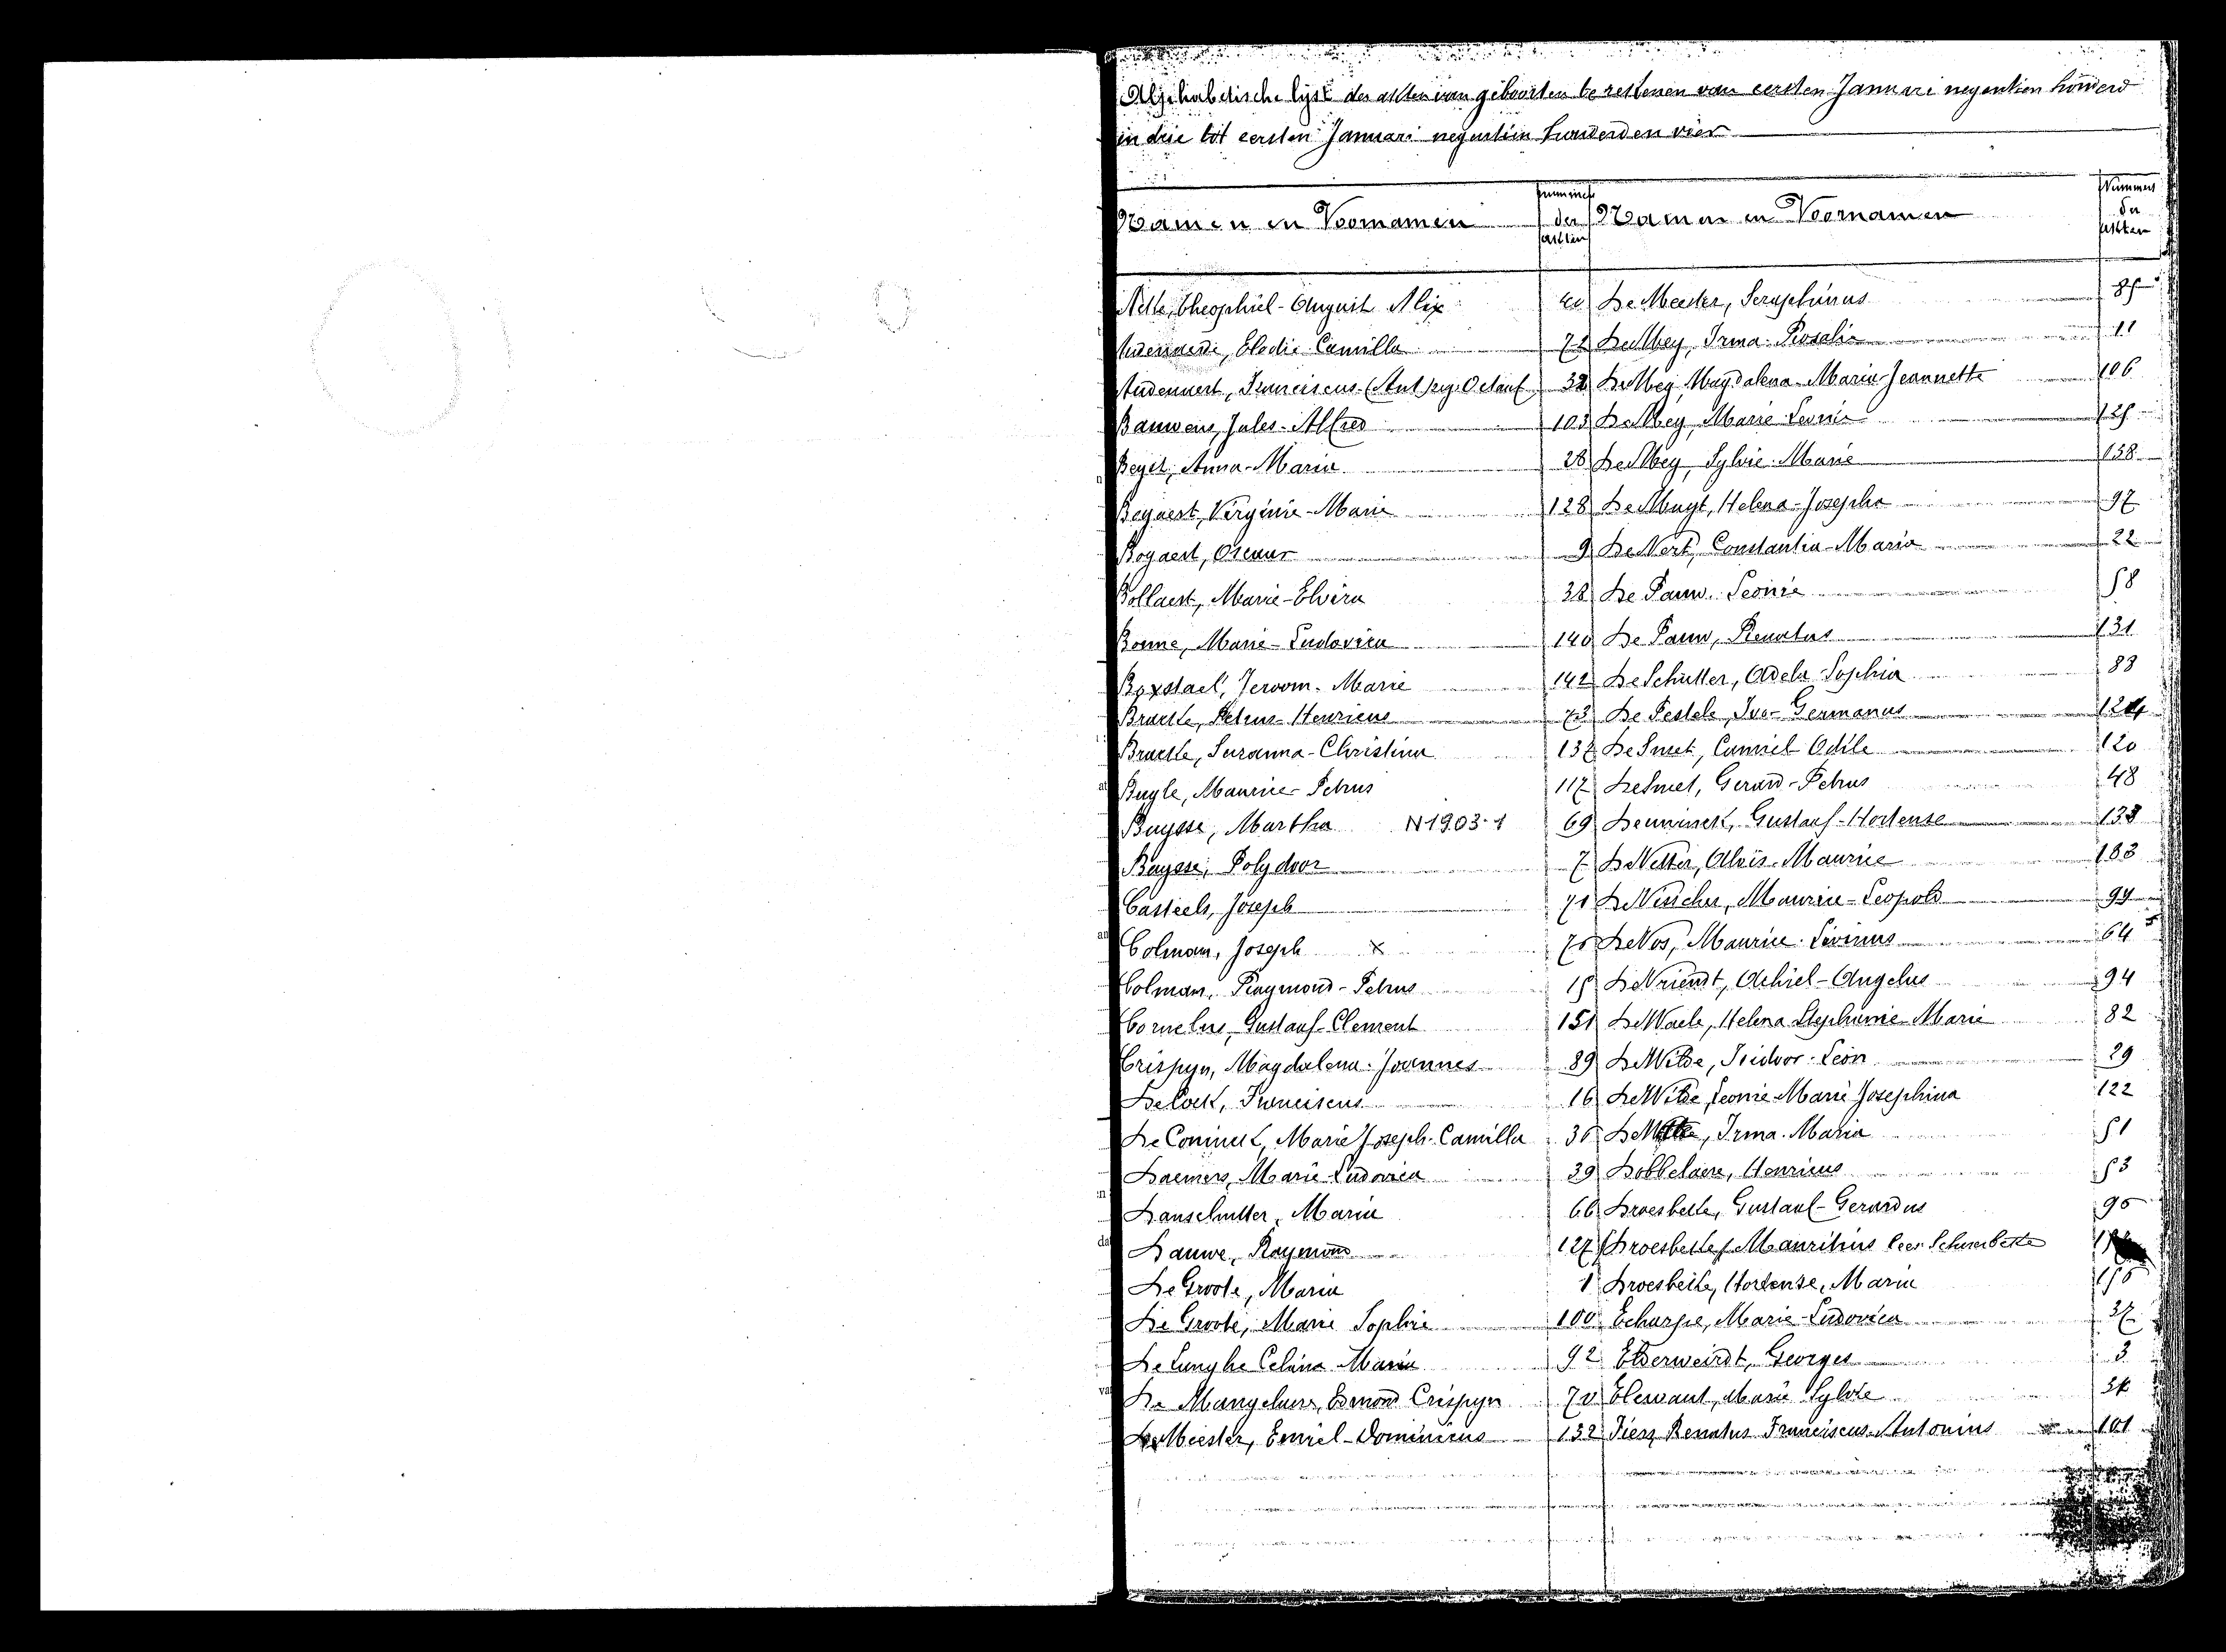 Alphabetische lijst der akten van geboorten berestenen van eersten Januari negentien honderd
en drie tot eersten Januari negentien honderd en vier
Namen en Voornamen
Nummers der akten
Namen en Voornamen
Nummers der akten
Theophiel-August Alix
De Meester, Seraphinus 85
Elodie Camilla 72
De Mey, Irma Rosalia 11
Audenaert, Franciscus-(Ant) Octaaf 32
De Mey, Magdalena-Maria-Jeannette 106
Bauwens, Jules-Alfred 103
De Mey, Marie Leonie 125
Beyst, Anna-Maria 28
De Mey, Sylvie Marie 138
Bogaert, Virginie-Marie 128
De Muyt, Helena-Josepha 97
Bogaert, Oscaar 9
De Nert, Constantia-Maria 22
Bollaert, Marie-Elvira 38
De Pauw, Leonie 58
Bonne, Marie-Ludovica 140
De Pauw, Renatus 131
Boxstael, Jeroom-Marie 142
De Schutter, Adela Sophia 83
Braekle, Petrus-Henricus 73
De Pestele, Ivo-Germanus 124
Braekle, Suzanna-Christina 137
De Smet, Camiel Odile 120
Buyle, Maurice-Petrus 117
De Smet, Gerard-Petrus 48
Buysse, Martha N1903-1 69
Deuninck, Gustaaf-Hortense
Buysse, Polydoor 7
Aloïs-Maurice
Casteels, Joseph 71
De Visscher, Maurice-Leopold 99
Colman, Joseph x
De Vos, Maurice-Livinus 64
Colman, Raymond-Petrus 15
De Vriendt, Achiel-Angelus 94
Cornelus, Gustaaf-Clement 151
De Waele, Helena Stephanie Marie 82
Crispyn, Magdalena-Joannes 89
De Wilde, Isidoor-Leon 29
De Cock, Franciscus 16
De Wilde, Leonie-Marie Josephina 122
De Coninck, Marie Joseph-Camilla
Irma-Maria 51
Daemers, Marie-Ludovica 39
Dobbelaere, Henricus 53
Danschutter, Maria 66
Droesbeke, Gustaaf-Gerardus
Dauwe, Raymond 127
(Droesbeke) Mauritius lees Schoesbeke
De Groote, Maria 1
Droesbeke, Hortense, Maria
De Groote, Marie Sophie 100
Echarpe, Marie-Ludovica 37
De Lunghe Celina Maria 92
Elderweirdt, Georges 3
Edmond Crispyn
Elewaut, Marie Sylvie
De Meester, Emiel-Dominicus 132
Fiers, Renatus Franciscus-Antonius 101